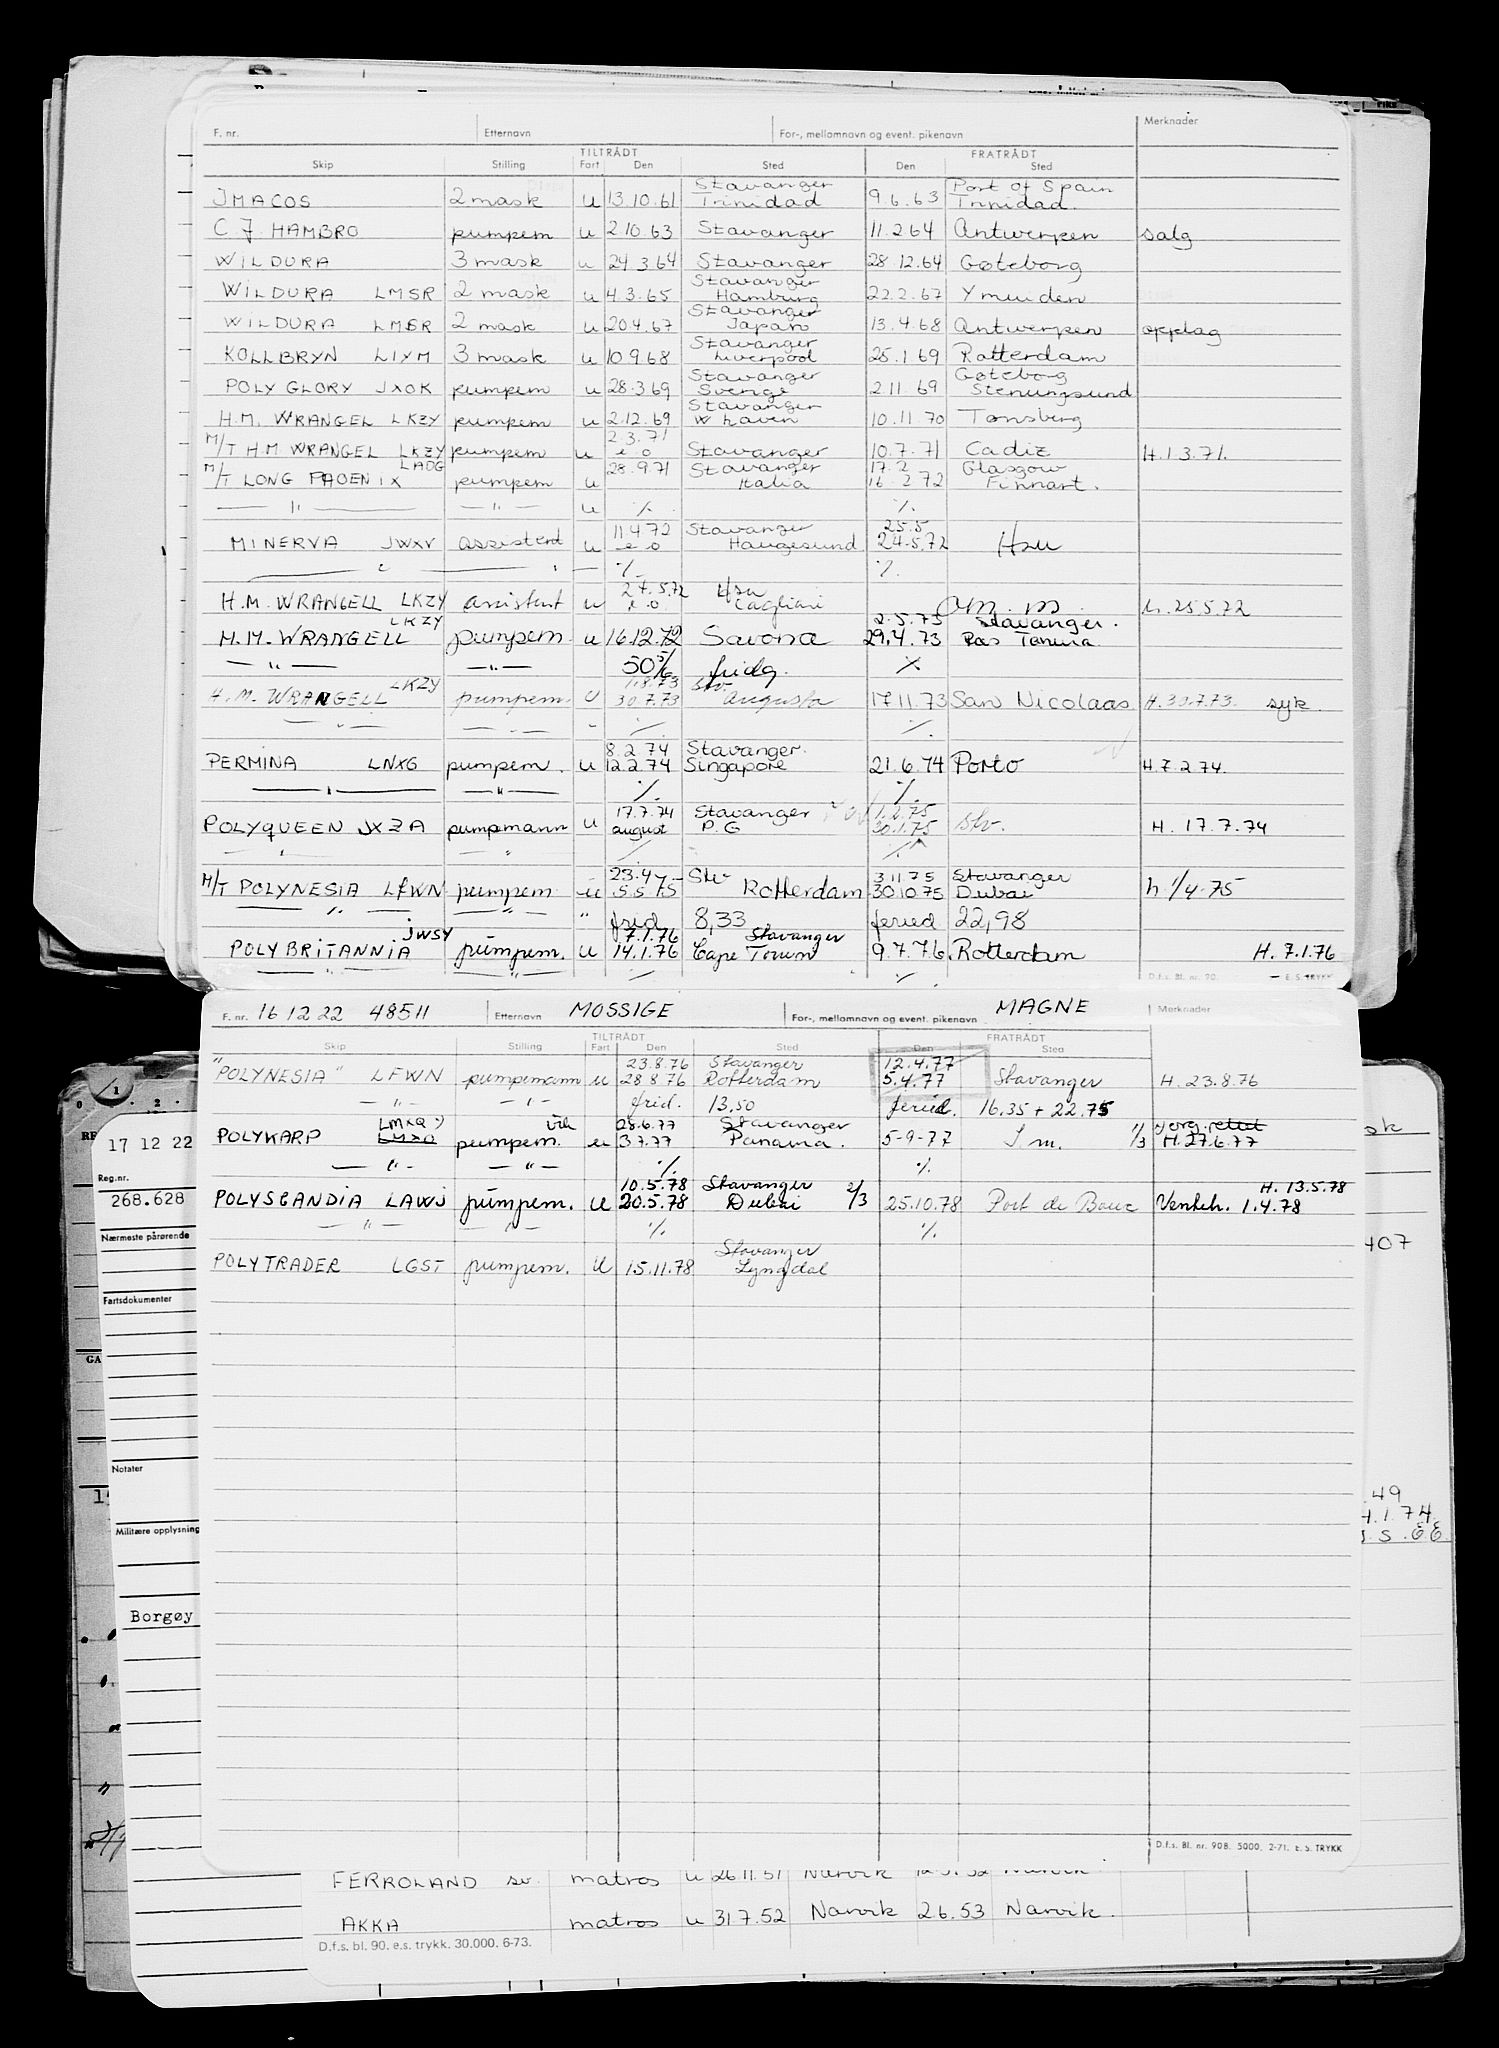 F. nr. Etternavn For-, mellomnavn og event. pikenavn Merknader
TILTRÅDT FRATRÅDT
Skip Stilling Fart Den Sted Den Sted
Stavanger Port of Spain
IMACOS 2 mask u 13.10.61 Trinidad 9.6.63 Trinidad.
C J. HAMBRO pumpem u 2.10.63 Stavanger 11.2.64 Antwerpen salg
WILDURA 3 mask u 24.3.64 Stavanger 28.12.64 Gøteborg
Stavanger
WILDURA LMSR 2 mask u 4.3.65 Hamburg 22.2.67 Ymuiden
Stavanger
WILDURA LMSR 2 mask u 20.4.67 Japan 13.4.68 Antwerpen opplag
Stavanger
KOLLBRYN LIYM 3 mask u 10.9.68 Liverpool 25.1.69 Rotterdam
Stavanger Gøteborg
POLY GLORY JXOK pumpem u 28.3.69 Sverige 2.11.69 Stenungsund
Stavanger
H.M. WRANGEL LKZY pumpem u 2.12.69 W haven 10.11.70 Tønsberg
2.3.71
M/T H.M. WRANGEL LKZY pumpem u e o Stavanger 10.7.71 Cadiz H.1.3.71.
LADG 28.9.71 Stavanger 17.2 Glasgow
M/T LONG PHOENIX pumpem u Italia 16.2.72 Finnart.
— " — — " — u ./. ./.
11.4.72 Stavanger 25.5
MINERVA JWXV assistent u e o Haugesund 24.5.72 Hsu
— " — " — ./. ./.
27.5.72 Hsu
H.M. WRANGELL LKZY assistent u e o Cagliari am. m. h. 25.5.72
LKZY 2.5.73 Stavanger.
H.M. WRANGELL pumpem. u 16.12.72 Savona 29.4.73 Ras Tanura
— " — — " — 50 % fridg. ./.
LKZY 1.8.73 Stv.
H.M. WRANGELL pumpem. U 30.7.73 Augusta 17.11.73 San Nicolaas H.30.7.73. syk.
— " — — " — ./. ./.
8.2.74 Stavanger.
PERMINA LNXG pumpem. u 12.2.74 Singapore 21.6.74 Porto H.7.2.74.
— " — — " — ./. ./.
17.7.74 Stavanger 1.2.75
POLYQUEEN JXZA pumpemann u august P.G 30.1.75 Stv. H. 17.7.74
" " ./. ./.
23.4 – Stv 3.11.75 Stavanger
M/T POLYNESIA LFWN pumpem u 5.5.75 Rotterdam 30.10.75 Dubai h. 1/4-75
— " — — " — " frid 8,33 feried 22,98
JWSY 7.1.76 Stavanger
POLYBRITANNIA pumpem. u 14.1.76 Cape Town 9.7.76 Rotterdam H. 7.1.76
— " — — " — ./. ./.
D.f.s. Bl. nr. 90. E.S. TRYKK
F. nr. 16 12 22 48511 Etternavn MOSSIGE For-, mellomnavn og event. pikenavn MAGNE Merknader
TILTRÅDT FRATRÅDT
Skip Stilling Fart Den Sted Den Sted
23.8.76 Stavanger 12.4.77
"POLYNESIA" LFWN pumpemann u 28.8.76 Rotterdam 5.4.77 Stavanger H. 23.8.76
— " — — " — frid. 13,50 feried. 16.35 + 22.75
LMXQ vik 28.6.77 Stavanger
POLYKARP LMXO pumpem. u 3.7.77 Panama. 5-9-77 S.m. 1/3 H.27.6.77
— " — — " — ./. ./.
10.5.78 Stavanger H. 13.5.78
POLYSCANDIA LAWJ pumpem. u 20.5.78 Dubai 2/3 25.10.78 Port de Bouc Venteh. 1.4.78
— " — — " — ./. ./.
Stavanger
POLYTRADER LGST pumpem. U 15.11.78 Lyngdal
D.f.s. Bl. nr. 908. 5000. 2-71. E.S. TRYKK
17 12 22
Reg.nr.
268.628
Nærmeste pårørende
Fartsdokumenter
Notater
Militære opplysning
Borgøy
407
49
4.1.74
FERROLAND sv. matros u 26.11.51 Narvik 12.5.52 Narvik
AKKA matros u 31.7.52 Narvik 2.6.53 Narvik.
D.f.s. bl. 90. e.s. trykk. 30.000. 6-73.